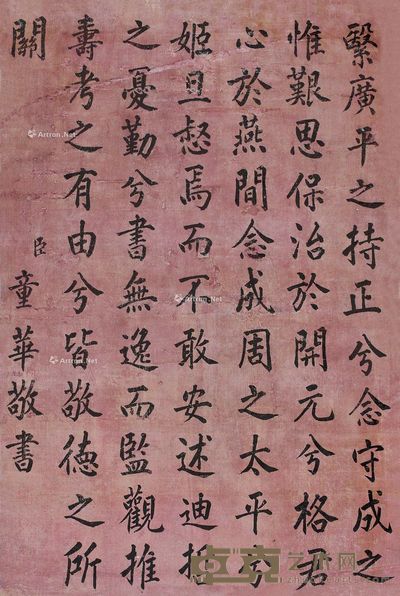 繄廣平之持正兮念守成之
惟艱思保治於開元兮格君
心於燕間念成周之太平兮
姬旦惄焉而不敢安述迪哲
之憂勤兮書無逸而監觀推
壽考之有由兮皆敬德之所
關
臣童華敬書
Artron.Net
Artron.Net
Artron.Net
Artron.Net
Artron.Net
Artron.Net
艺术网